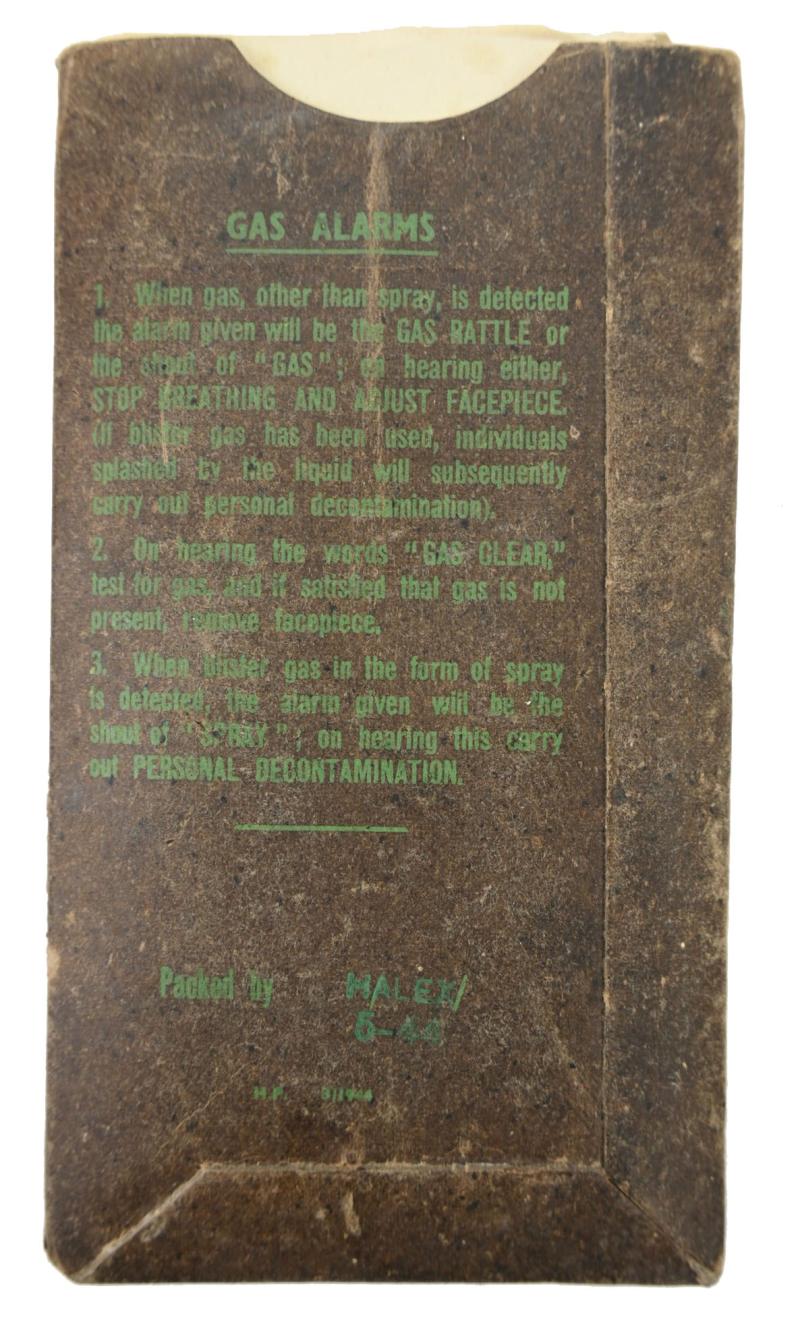 GAS ALARMS
1. When gas, other than spray, is detected
the alarm given will be the GAS RATTLE or
the shout of "GAS"; on hearing either,
STOP BREATHING AND ADJUST FACEPIECE.
(If blister gas has been used, individuals
splashed by the liquid will subsequently
carry out personal decontamination).
2. On hearing the words "GAS CLEAR,"
test for gas, and if satisfied that gas is not
present, remove facepiece.
3. When blister gas in the form of spray
is detected, the alarm given will be the
shout of "SPRAY"; on hearing this carry
out PERSONAL DECONTAMINATION.
Packed by HALEX/
5-44
H.P. 3/1944